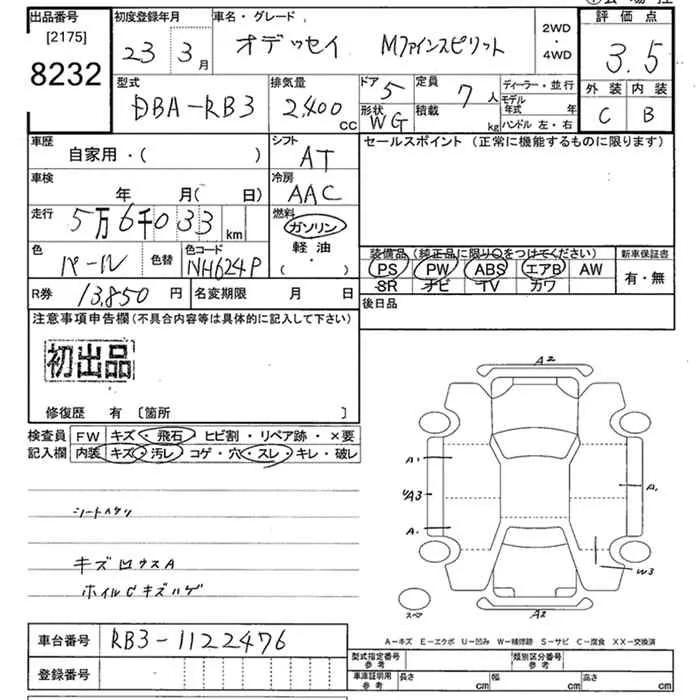 出品番号
[2175]
8232
初度登録年月
23 3月
車名・グレード
オデッセイ Mファインスピリット
2WD
・
4WD
評価点
3.5
外装 内装
C B
型式
DBA-RB3
排気量
2,400
cc
ドア
5
形状
WG
定員
7人
積載
kg
ディーラー・並行
モデル
年式 年
ハンドル 左・右
車歴
自家用・( )
シフト
AT
セールスポイント (正常に機能するものに限ります)
車検
年 月( 日)
冷房
AAC
走行
5万6千033 km
燃料
ガソリン
軽油
( ・ )
色
パール
色替
色コード
NH624P
装備品 (純正品に限り○をつけてください)
PS PW ABS エアB AW
SR ナビ TV カワ
新車保証書
有・無
R券 13,850 円
名変期限 月 日
後日品
注意事項申告欄 (不具合内容等は具体的に記入して下さい)
初出品
修復歴 有 〔箇所 〕
検査員
記入欄
FW キズ・飛石・ヒビ割・リペア跡・×要
内装 キズ・汚レ・コゲ・穴・スレ・キレ・破レ
シートヘタリ
キズ凹ウスA
ホイルCキズハゲ
A2
A1
A1
W3
A2
スペア
A-キズ E-エクボ U-凹み W-補修跡 S-サビ C-腐食 XX-交換済
車台番号 RB3-1122476
登録番号
型式指定番号
参考
類別区分番号
参考
車庫証明用
参考
長さ cm 幅 cm 高さ cm